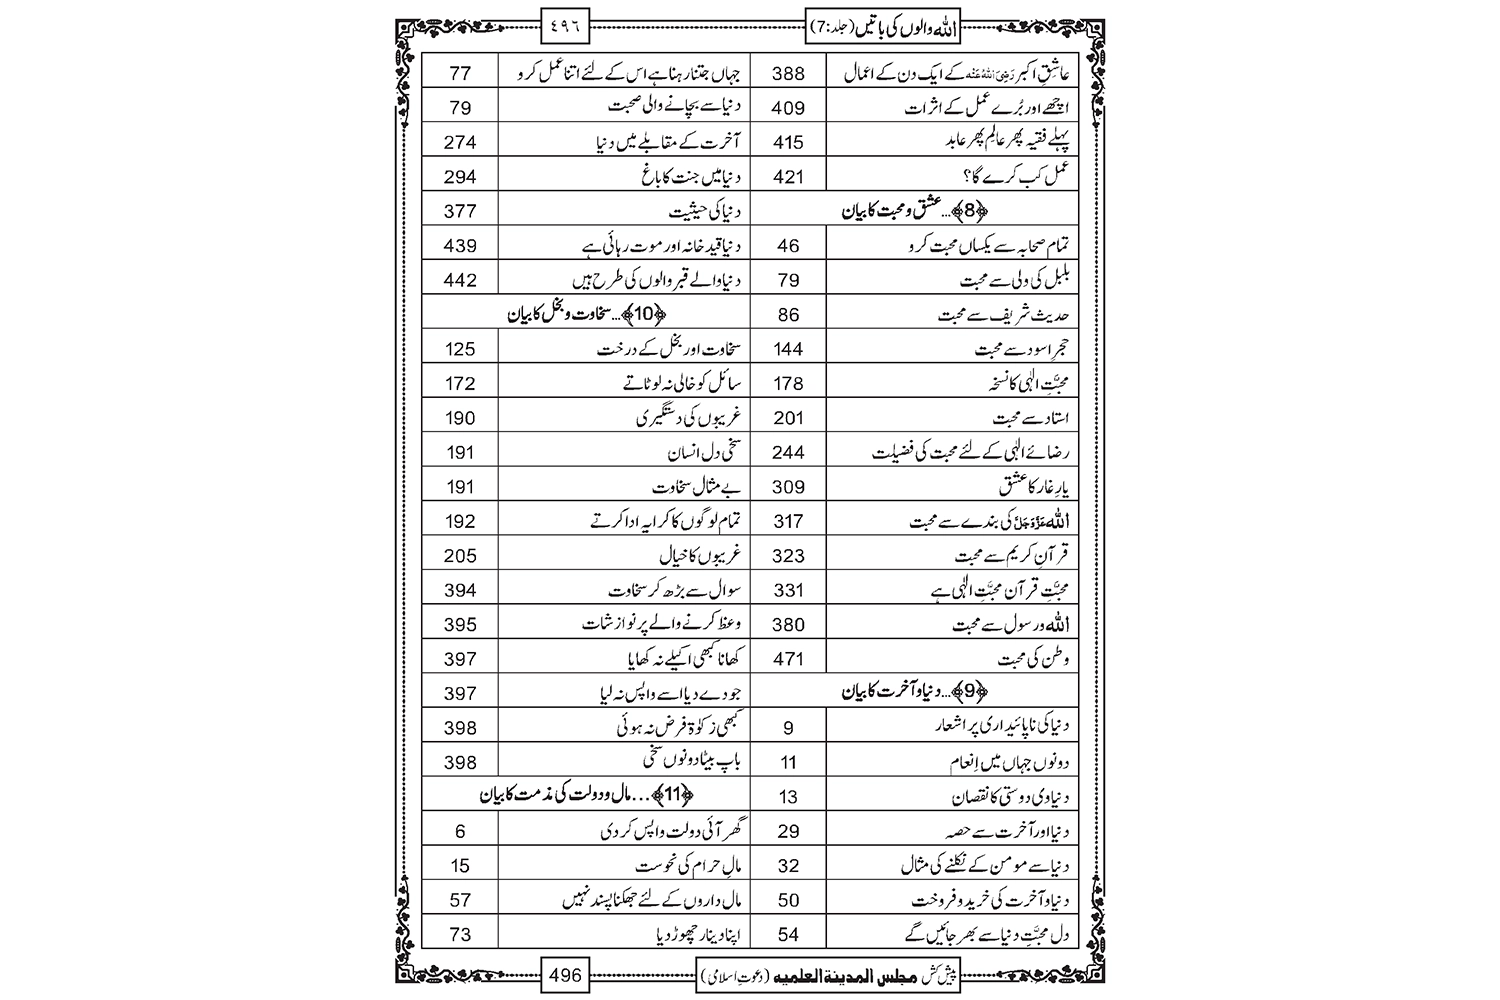 اللہ والوں کی باتیں (جلد:7)
٤٩٦
عاشقِ اکبر رَضِیَ اللہُ عَنْہ کے ایک دن کے اعمال 388
اچھے اور بُرے عمل کے اثرات 409
پہلے فقیہ پھر عالِم پھر عابد 415
عمل کب کرے گا؟ 421
﴿8﴾...عشق و محبت کا بیان
تمام صحابہ سے یکساں محبت کرو 46
بلبل کی ولی سے محبت 79
حدیث شریف سے محبت 86
حجرِ اسود سے محبت 144
محبَّتِ الٰہی کا نسخہ 178
استاد سے محبت 201
رضائے الٰہی کے لئے محبت کی فضیلت 244
یارِ غار کا عشق 309
اللہ عَزَّوَجَلَّ کی بندے سے محبت 317
قرآنِ کریم سے محبت 323
محبَّتِ قرآن محبَّتِ الٰہی ہے 331
اللہ و رسول سے محبت 380
وطن کی محبت 471
﴿9﴾...دنیا و آخرت کا بیان
دنیا کی ناپائیداری پر اشعار 9
دونوں جہاں میں اِنعام 11
دنیاوی دوستی کا نقصان 13
دنیا اور آخرت سے حصہ 29
دنیا سے مومن کے نکلنے کی مثال 32
دنیا و آخرت کی خرید و فروخت 50
دل محبَّتِ دنیا سے بھر جائیں گے 54
جہاں جتنا رہنا ہے اس کے لئے اتنا عمل کرو 77
دنیا سے بچانے والی صحبت 79
آخرت کے مقابلے میں دنیا 274
دنیا میں جنت کا باغ 294
دنیا کی حیثیت 377
دنیا قید خانہ اور موت رہائی ہے 439
دنیا والے قبر والوں کی طرح ہیں 442
﴿10﴾...سخاوت و بخل کا بیان
سخاوت اور بخل کے درخت 125
سائل کو خالی نہ لوٹاتے 172
غریبوں کی دستگیری 190
سخی دل انسان 191
بے مثال سخاوت 191
تمام لوگوں کا کرایہ ادا کرتے 192
غریبوں کا خیال 205
سوال سے بڑھ کر سخاوت 394
وعظ کرنے والے پر نوازشات 395
کھانا کبھی اکیلے نہ کھایا 397
جو دے دیا اسے واپس نہ لیا 397
کبھی زکوٰۃ فرض نہ ہوئی 398
باپ بیٹا دونوں سخی 398
﴿11﴾...مال و دولت کی مذمت کا بیان
گھر آئی دولت واپس کر دی 6
مالِ حرام کی نحوست 15
مال داروں کے لئے جھکنا پسند نہیں 57
اپنا دینار چھوڑ دیا 73
پیش کش مجلس المدینۃ العلمیہ (دعوتِ اسلامی)
496